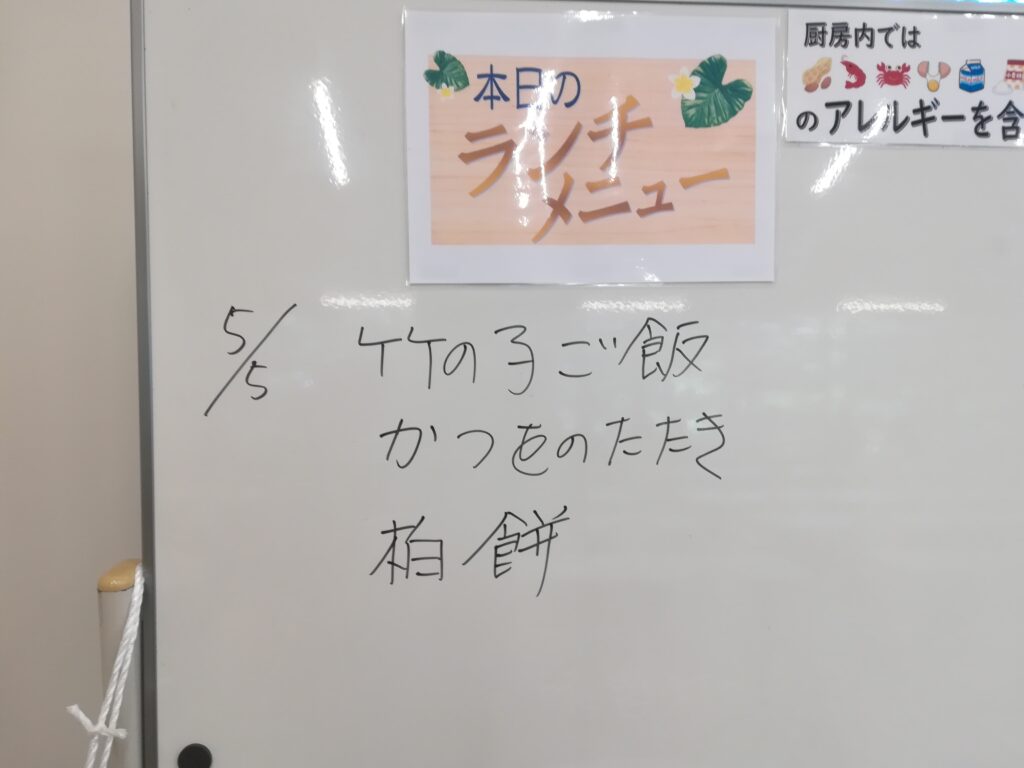 本日の
ランチ
メニュー
厨房内では
のアレルギーを含
5/5 竹の子ご飯
かつをのたたき
柏餅